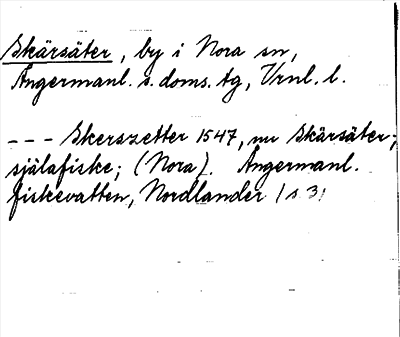 Skärsäter, by i Nora sn,
Ångermanl. s. doms. tg, Vrnl. l.
--- Skerszetter 1547, nu Skärsäter;
själafiske; (Nora). Ångermanl.
fiskevatten, Nordlander / s 3)